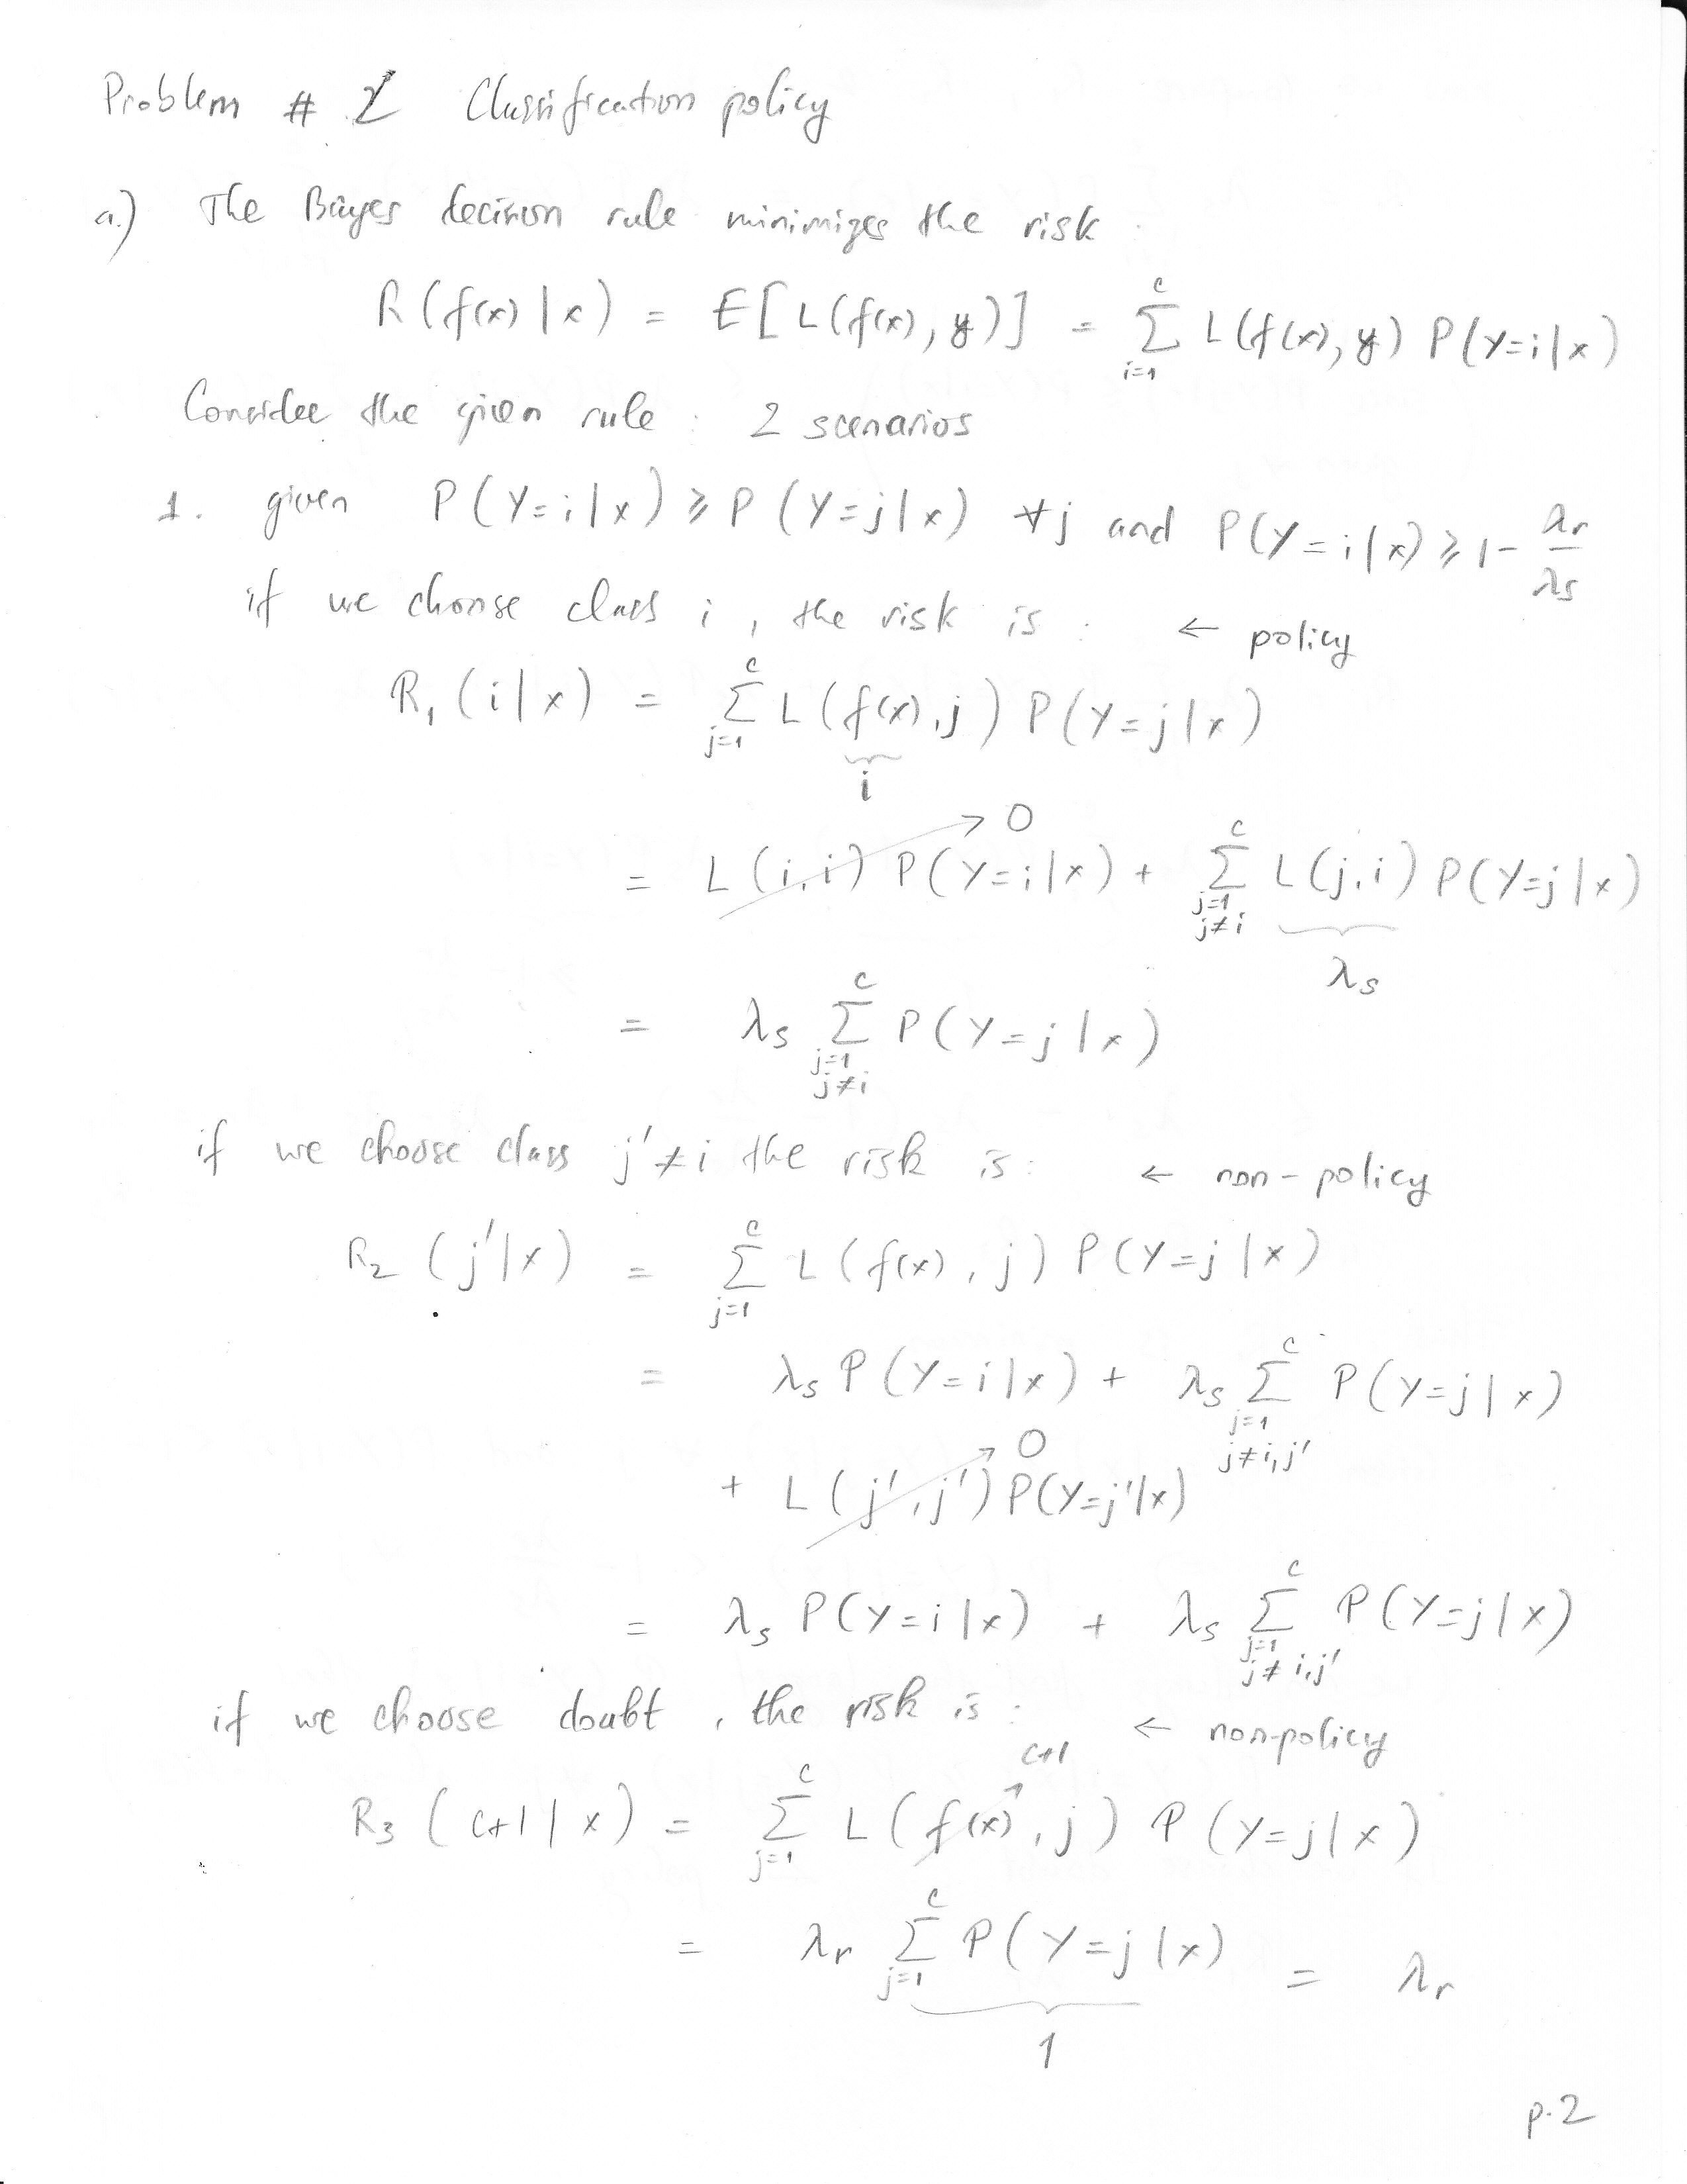 Problem # 2 Classification policy
a.) The Bayes decision rule minimizes the risk
R(f(x)|x) = E[L(f(x), y)] = Σ_{i=1}^{c} L(f(x), y) P(Y=i|x)
Consider the given rule : 2 scenarios
1. given P(Y=i|x) ⩾ P(Y=j|x) ∀j and P(Y=i|x) ⩾ 1 - λr/λs
if we choose class i, the risk is : ← policy
R₁(i|x) = Σ_{j=1}^{c} L(f(x), j) P(Y=j|x)
i
= L(i,i) P(Y=i|x) → 0 + Σ_{j=1, j≠i}^{c} L(j,i) P(Y=j|x)
λs
= λs Σ_{j=1, j≠i}^{c} P(Y=j|x)
if we choose class j'≠i the risk is : ← non-policy
R₂(j'|x) = Σ_{j=1}^{c} L(f(x), j) P(Y=j|x)
= λs P(Y=i|x) + λs Σ_{j=1, j≠i,j'}^{c} P(Y=j|x)
+ L(j',j') → 0 P(Y=j'|x)
= λs P(Y=i|x) + λs Σ_{j=1, j≠i,j'}^{c} P(Y=j|x)
if we choose doubt, the risk is : ← non-policy
R₃(c+1|x) = Σ_{j=1}^{c} L(f(x) → c+1, j) P(Y=j|x)
= λr Σ_{j=1}^{c} P(Y=j|x) = λr
1
p.2